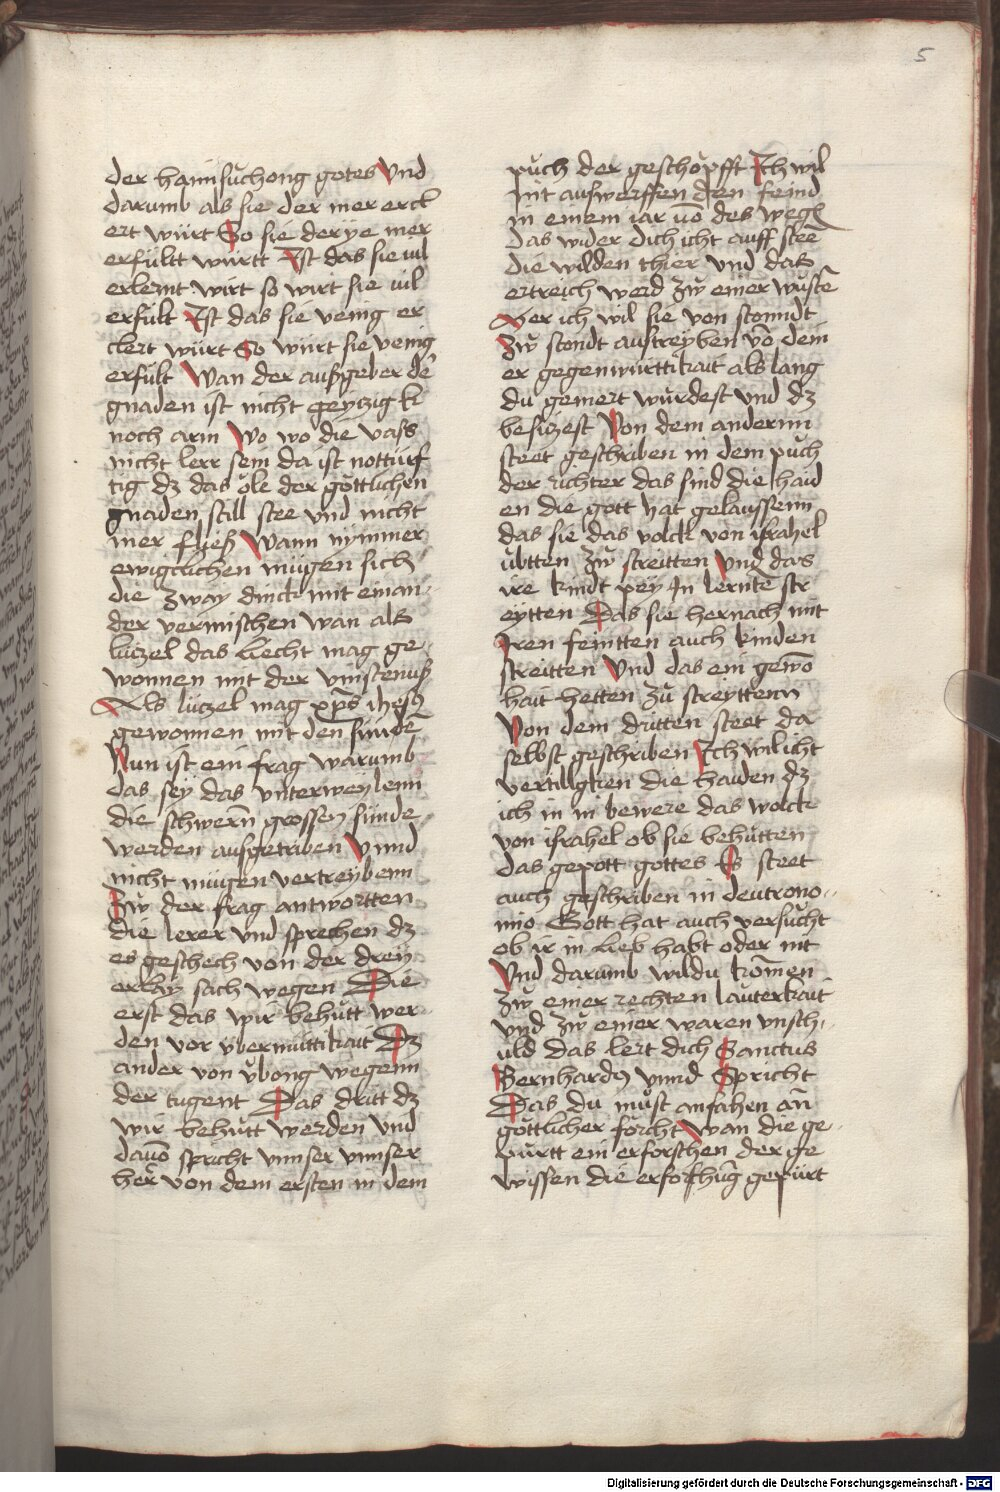 5
der haimsůchong gotes Vnd
darumb als sie der mer erck
ert würt So sie der ye mer
erfültt württ Ist das sie uil
erlernt wirt so wirt sie uil
erfült Ist das sie venig er
clert würt So würt sie venig
erfült Wan der außgeber dē
gnaden ist nicht geytzig
noch arm Wo wo die vass
nicht lerr sein da ist notturf
tig dz das öle der göttlichen
gnaden still stee vnd nicht
mer fließ Wann nymmer
ewigclichen mügen sich
die zway dinck mit einan-
der vermischen wan als
lützel das liecht mag ge-
wonnen mit der vinsternuß
Als lützel mag xp̄s ihesꝫ
gewonnen mit den sündē
Nun ist ein frag warumb
das sey das vnterweylenn
die schwern̄ grossen sünde
werden ausgetriben Vnnd
nicht mügen vertreybenn
Zw der frag antwortten
die lerer vnd sprechen dz
es geschech von der drey
erlay sach wegen Die
erst das wir behütt wer
den vor vbermüttikait Dz
ander von vbong wegenn
der tugent Das dritt dz
wir behütt werden Vnd
dauō spricht vnnser vnnser
her von dem ersten in dem
půch der geschöpfft Ich wil
nit auswerffen den feind
in einem iar vō des wegē
das wider dich icht auff stee
die wilden thier vnd das
ertreich werd zw einer wüstē
Aber ich wil sie von stonndt
Zw stondt austreyben vō dem
er gegenwürttikait als lang
du gemert würdest vnd dz
besitzest Von dem andernn
steet geschriben in dem půch
der richter das sind die haid
en die gott hat gelaussenn
das sie das volck von israhel
übtten zw streitten Vnd das
ire kindt pey in lerntē str
eytten Das sie hernach mit
Iren feintten auch kinden
streitten Vnd das ein gewō
hait hetten zů streyttenn
Von dem dritten steet da
selbst geschriben Ich wil icht
vertilligken die haiden dz
ich in in bewere das wolck
von israhel ob sie behütten
das gepott gottes Es steet
auch geschriben in deutrono-
mio Gott hat auch versůcht
ob ir in lieb habt oder nit
Vnd darumb wildu kōmen
Zw einer rechten lauterkait
vnd zw einer waren vnsch-
uld das lert dich Sanctus
Bernhardꝰ vnnd Spricht
Das du můst anfahen an̄
göttlicher forcht Wan die ge-
pürtt ein erforschen der ge
wissen die erforshūg gepürt
Digitalisierung gefördert durch die Deutsche Forschungsgemeinschaft - DFG